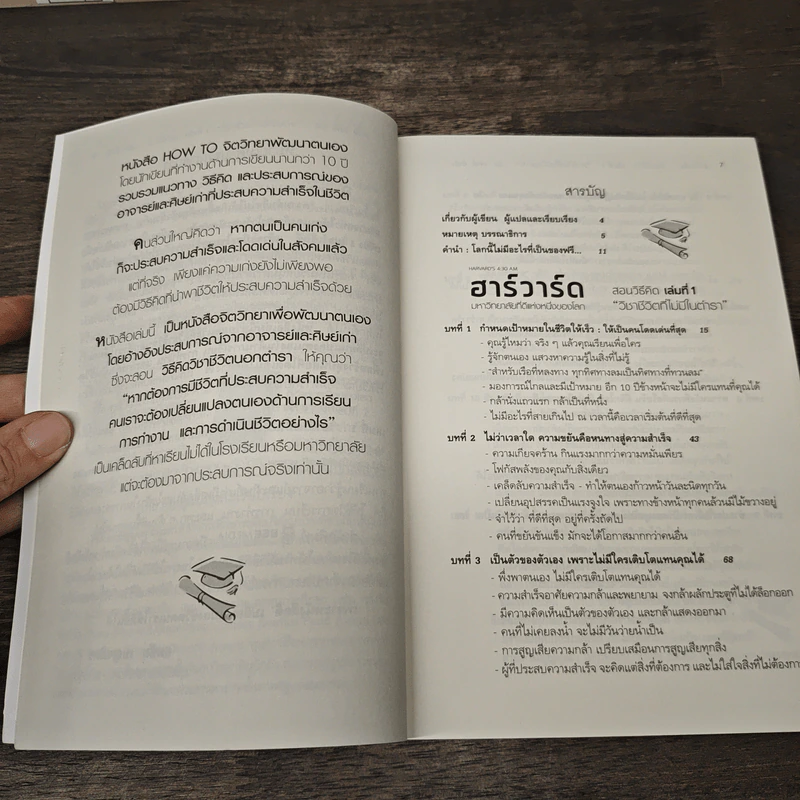 หนังสือ HOW TO จิตวิทยาพัฒนาตนเอง
โดยนักเขียนที่ทำงานด้านการเขียนนานกว่า 10 ปี
รวบรวมแนวทาง วิธีคิด และประสบการณ์ของ
อาจารย์และศิษย์เก่าที่ประสบความสำเร็จในชีวิต
คนส่วนใหญ่คิดว่า หากตนเป็นคนเก่ง
ก็จะประสบความสำเร็จและโดดเด่นในสังคมแล้ว
แต่ที่จริง เพียงแค่ความเก่งยังไม่เพียงพอ
ต้องมีวิธีคิดที่นำพาชีวิตให้ประสบความสำเร็จด้วย
หนังสือเล่มนี้ เป็นหนังสือจิตวิทยาเพื่อพัฒนาตนเอง
โดยอ้างอิงประสบการณ์จากอาจารย์และศิษย์เก่า
ซึ่งจะสอน วิธีคิดวิชาชีวิตนอกตำรา ให้คุณว่า
"หากต้องการมีชีวิตที่ประสบความสำเร็จ
คนเราจะต้องเปลี่ยนแปลงตนเองด้านการเรียน
การทำงาน และการดำเนินชีวิตอย่างไร"
เป็นเคล็ดลับที่หาเรียนไม่ได้ในโรงเรียนหรือมหาวิทยาลัย
แต่จะต้องมาจากประสบการณ์จริงเท่านั้น
สารบัญ
เกี่ยวกับผู้เขียน ผู้แปลและเรียบเรียง 4
หมายเหตุ บรรณาธิการ 5
คำนำ : โลกนี้ไม่มีอะไรที่เป็นของฟรี... 11
HARVARD'S 4:30 A.M.
ฮาร์วาร์ด สอนวิธีคิด เล่มที่ 1
มหาวิทยาลัยที่ดีแห่งหนึ่งของโลก "วิชาชีวิตที่ไม่มีในตำรา"
บทที่ 1 กำหนดเป้าหมายในชีวิตให้เร็ว : ให้เป็นคนโดดเด่นที่สุด 15
- คุณรู้ไหมว่า จริง ๆ แล้วคุณเรียนเพื่อใคร
- รู้จักตนเอง แสวงหาความรู้ในสิ่งที่ไม่รู้
- "สำหรับเรือที่หลงทาง ทุกทิศทางลมเป็นทิศทางที่ทวนลม"
- มองการณ์ไกลและมีเป้าหมาย อีก 10 ปีข้างหน้าจะไม่มีใครแทนที่คุณได้
- กล้านั่งแถวแรก กล้าเป็นที่หนึ่ง
- ไม่มีอะไรที่สายเกินไป ณ เวลานี้คือเวลาเริ่มต้นที่ดีที่สุด
บทที่ 2 ไม่ว่าเวลาใด ความขยันคือหนทางสู่ความสำเร็จ 43
- ความเกียจคร้าน กินแรงมากกว่าความหมั่นเพียร
- โฟกัสพลังของคุณกับสิ่งเดียว
- เคล็ดลับความสำเร็จ - ทำให้ตนเองก้าวหน้าวันละนิดทุกวัน
- เปลี่ยนอุปสรรคเป็นแรงจูงใจ เพราะทางข้างหน้าทุกคนล้วนมีไม้ขวางอยู่
- จำไว้ว่า ที่ดีที่สุด อยู่ที่ครั้งถัดไป
- คนที่ขยันขันแข็ง มักจะได้โอกาสมากกว่าคนอื่น
บทที่ 3 เป็นตัวของตัวเอง เพราะไม่มีใครเติบโตแทนคุณได้ 68
- พึ่งพาตนเอง ไม่มีใครเติบโตแทนคุณได้
- ความสำเร็จอาศัยความกล้าและพยายาม จงกล้าผลักประตูที่ไม่ได้ล็อกออก
- มีความคิดเห็นเป็นของตัวเอง และกล้าแสดงออกมา
- คนที่ไม่เคยลงน้ำ จะไม่มีวันว่ายน้ำเป็น
- การสูญเสียความกล้า เปรียบเสมือนการสูญเสียทุกสิ่ง
- ผู้ที่ประสบความสำเร็จ จะคิดแต่สิ่งที่ต้องการ และไม่ใส่ใจสิ่งที่ไม่ต้องการ